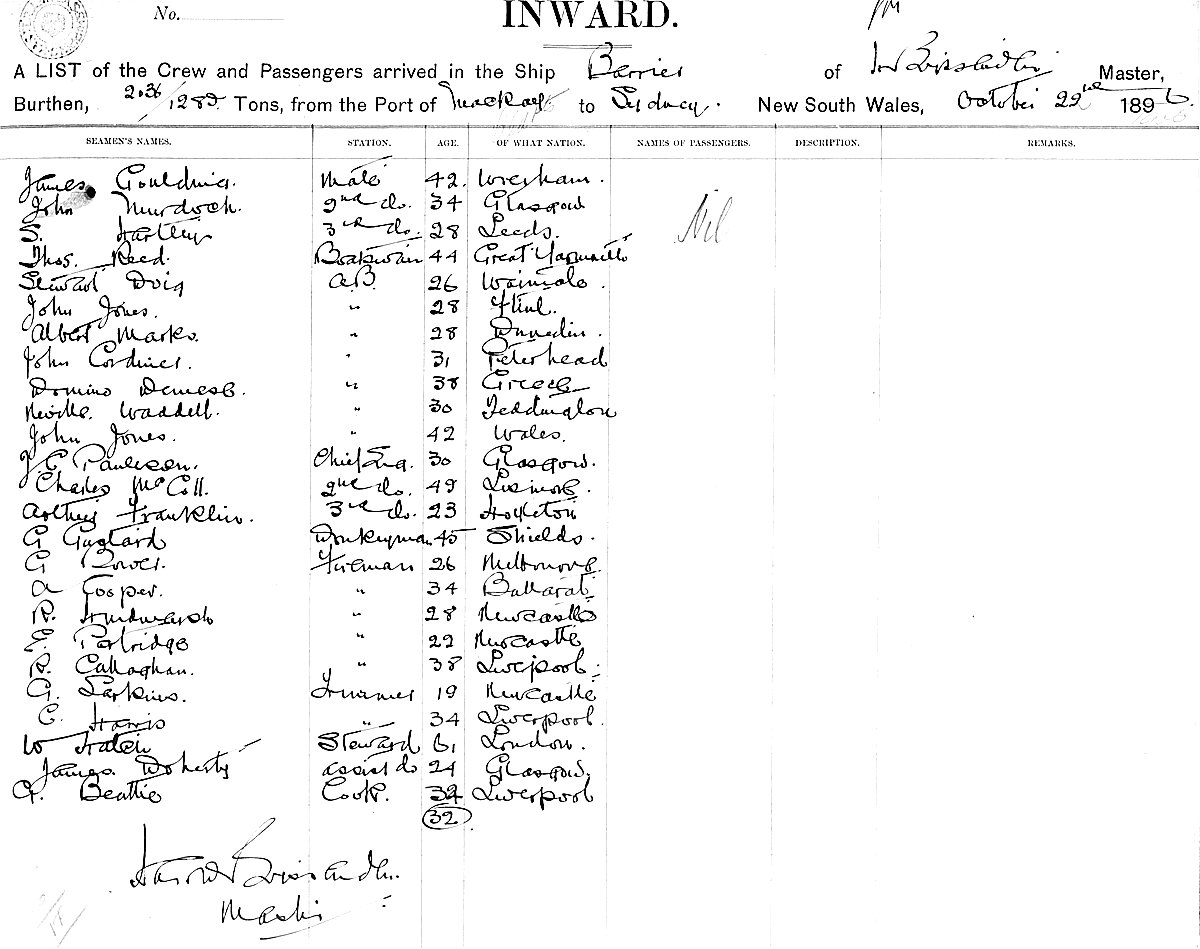 No.
INWARD.
A LIST of the Crew and Passengers arrived in the Ship Barrier of Master,
Burthen, 2036/1289 Tons, from the Port of Mackay to Sydney. New South Wales, October 22nd 1896.
SEAMEN'S NAMES. STATION. AGE. OF WHAT NATION. NAMES OF PASSENGERS. DESCRIPTION. REMARKS.
James Goulding. Mate 42. Wrexham. Nil
John Murdoch. 2nd do. 34 Glasgow
S. Hartley 3rd do. 28 Leeds.
Thos. Reed. Boatswain 44 Great Yarmouth
Stewart Doig A.B. 26 .
John Jones. " 28 Flint.
Albert Marks. " 28 Dunedin.
John Cordiner. " 31 Peterhead
Domino " 38 Greece
Neville Waddell. " 30 Teddington
John Jones. " 42 Wales.
J. E. Paulsen. Chief Eng. 30 Glasgow.
Charles McColl. 2nd do. 49 Lismore.
Arthur Franklin. 3rd do. 23 Hoyleton
G Gustard Donkeyman. 45 Shields.
G Power. Fireman 26 Melbourne.
A Cooper. " 34 Ballarat.
R. " 28 Newcastle
E. Partridge " 22 Newcastle
R. Callaghan. " 38 Liverpool.
G. Larkins. Trimmer 19 Newcastle
C. Harris " 34 Liverpool.
W Hatch Steward 61 London.
James Doherty assist do 24 Glasgow.
G. Beattie Cook. 32 Liverpool
32
Master